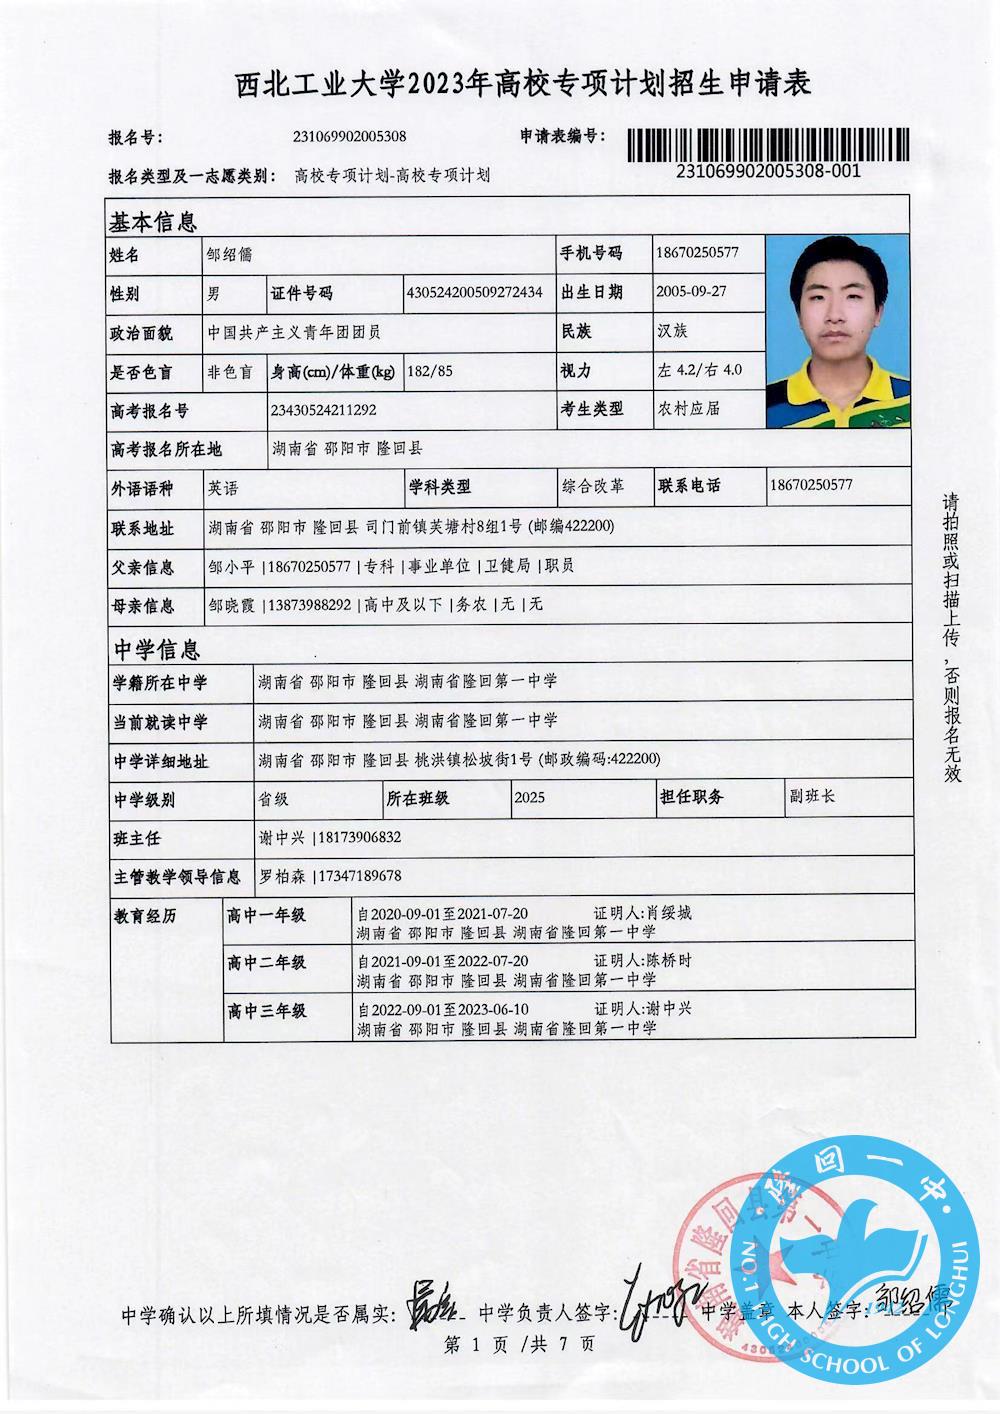 西北工业大学2023年高校专项计划招生申请表
报名号： 231069902005308 申请表编号：
231069902005308-001
报名类型及一志愿类别： 高校专项计划-高校专项计划
基本信息
姓名 邹绍儒 手机号码 18670250577
性别 男 证件号码 430524200509272434 出生日期 2005-09-27
政治面貌 中国共产主义青年团团员 民族 汉族
是否色盲 非色盲 身高(cm)/体重(kg) 182/85 视力 左 4.2/右 4.0
高考报名号 23430524211292 考生类型 农村应届
高考报名所在地 湖南省 邵阳市 隆回县
外语语种 英语 学科类型 综合改革 联系电话 18670250577
联系地址 湖南省 邵阳市 隆回县 司门前镇芙塘村8组1号 (邮编422200)
父亲信息 邹小平 |18670250577 |专科 |事业单位 |卫健局 |职员
母亲信息 邹晓霞 |13873988292 |高中及以下 |务农 |无 |无
中学信息
学籍所在中学 湖南省 邵阳市 隆回县 湖南省隆回第一中学
当前就读中学 湖南省 邵阳市 隆回县 湖南省隆回第一中学
中学详细地址 湖南省 邵阳市 隆回县 桃洪镇松坡街1号 (邮政编码:422200)
中学级别 省级 所在班级 2025 担任职务 副班长
班主任 谢中兴 |18173906832
主管教学领导信息 罗柏森 |17347189678
教育经历 高中一年级 自2020-09-01至2021-07-20 证明人:肖绥城
湖南省 邵阳市 隆回县 湖南省隆回第一中学
高中二年级 自2021-09-01至2022-07-20 证明人:陈桥时
湖南省 邵阳市 隆回县 湖南省隆回第一中学
高中三年级 自2022-09-01至2023-06-10 证明人:谢中兴
湖南省 邵阳市 隆回县 湖南省隆回第一中学
请拍照或扫描上传，否则报名无效
中学确认以上所填情况是否属实： 中学负责人签字： 中学盖章 本人签字：邹绍儒
第 1 页 /共 7 页
隆回一中
NO.1 HIGH SCHOOL OF LONGHUI